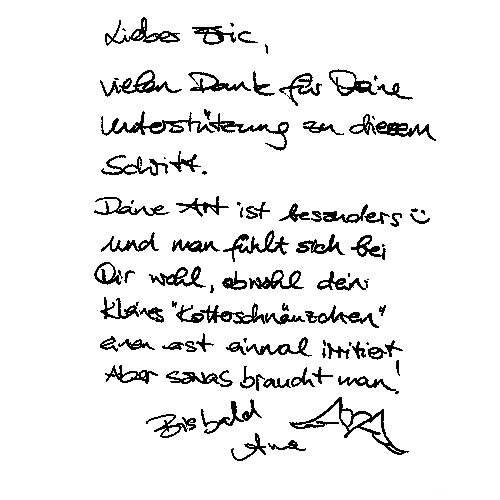 Lieber Eric,
vielen Dank für Deine
Unterstützung zu diesem
Schritt.
Deine Art ist besonders☺
und man fühlt sich bei
Dir wohl, obwohl dein
kleines "Kotterschnäuzchen"
einen erst einmal irritiert
Aber sowas braucht man!
Bis bald